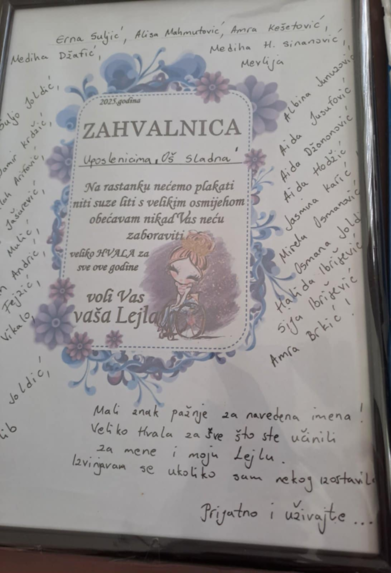 Erna Suljić, Alisa Mahmutović, Amra Kešetović,
Mediha Džafić, Mediha H. Sinanović,
Mevlija
2025.godina
ZAHVALNICA
Uposlenicima "OŠ Sladna"
Na rastanku nećemo plakati
niti suze liti s velikim osmijehom
obećavam nikad Vas neću
zaboraviti
veliko HVALA za
sve ove godine
voli Vas
vaša Lejla
Joldić,
Malić,
Andrić
Fejzić,
Joldić,
Albina
Aida Jusufović
Aida Džononović
Aida Hodžić
Jasmina Karić
Mirela Osmanović
Osmana Jold
Halida Ibrišević
Sija Ibrišević
Amra Brkić
Mali znak pažnje za navedena imena!
Veliko Hvala za sve što ste učinili
za mene i moju Lejlu.
Izvinjavam se ukoliko sam nekog izostavil
Prijatno i uživajte ...